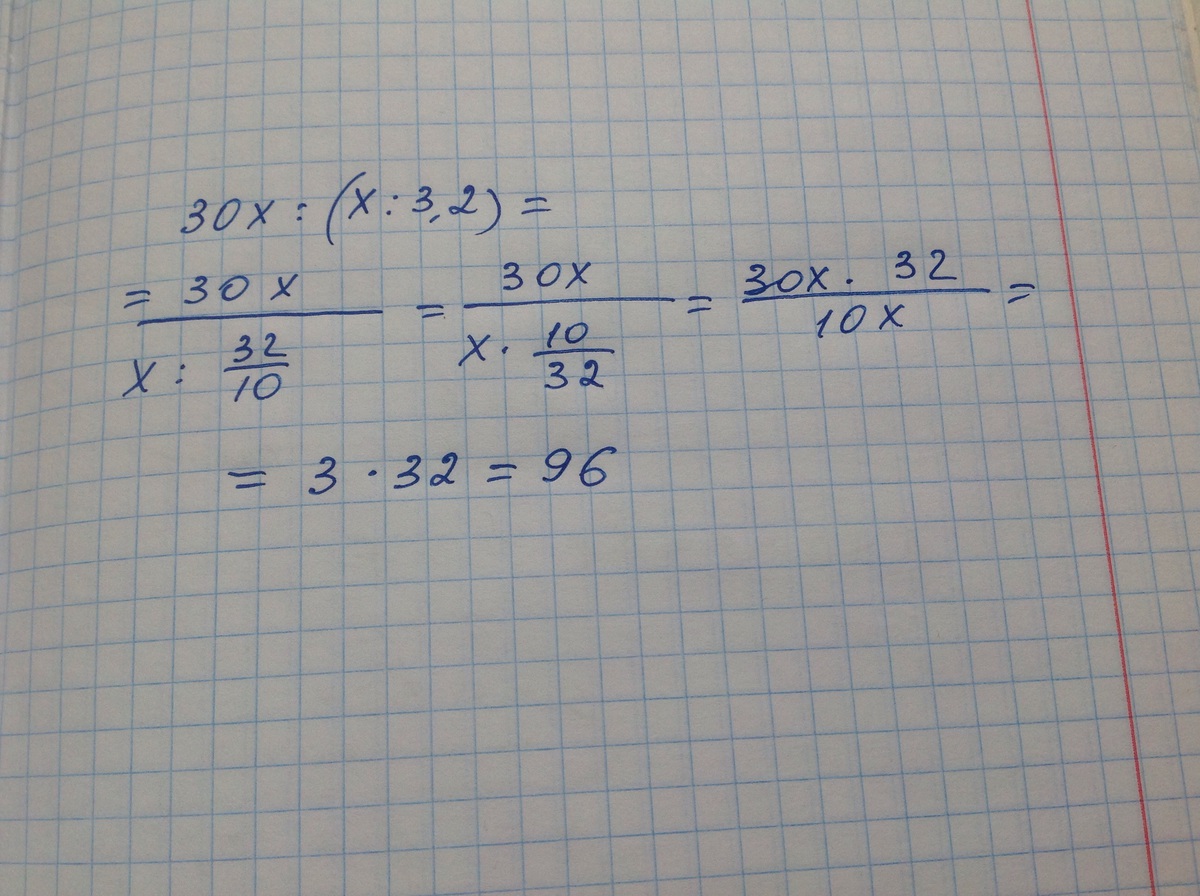 30x : (x : 3,2) =
= 30x / (x : 32/10) = 30x / (x · 10/32) = 30x · 32 / 10x =
= 3 · 32 = 96